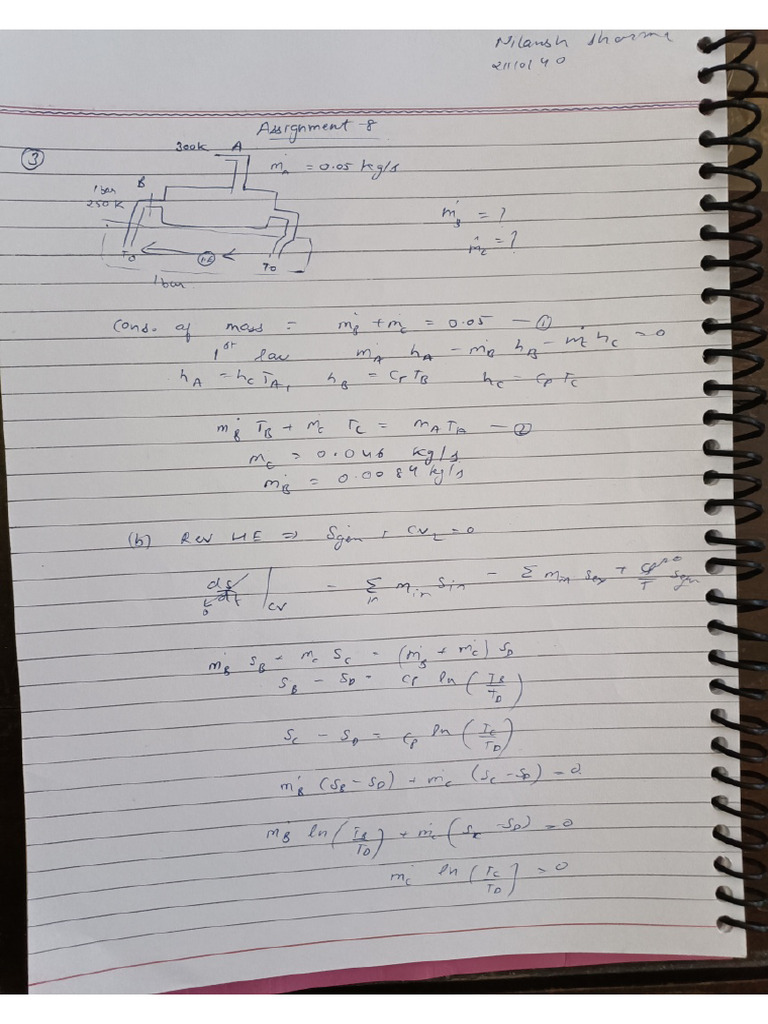 Nilansh Sharma
2110140
Assignment-8
③
300K A
ṁ_A = 0.05 kg/s
1 bar B
250 K
ṁ_B = ?
ṁ_C = ?
T0 HE T0
1 bar
Cons. of mass = ṁ_B + ṁ_C = 0.05 — ①
1st law ṁ_A h_A - ṁ_B h_B - ṁ_C h_C = 0
h_A = h_C T_A, h_B = C_P T_B h_C = C_P T_C
ṁ_B T_B + ṁ_C T_C = ṁ_A T_A — ②
ṁ_C = 0.046 kg/s
ṁ_B = 0.0084 kg/s
(b) Rev HE ⇒ Sgen, CV_2 = 0
ds/dt |CV = Σ_in m_in s_in - Σ m_in s_ex + /T Sgen
ṁ_B S_B - ṁ_C S_C - (ṁ_B + ṁ_C) S_D
S_B - S_D = C_P ln (T_B/T_D)
S_C - S_D = C_P ln (T_C/T_D)
ṁ_B (S_B - S_D) + ṁ_C (S_C - S_D) = 0
ṁ_B ln (T_B/T_D) + ṁ_C (S_C - S_D) = 0
ṁ_C ln (T_C/T_D) = 0